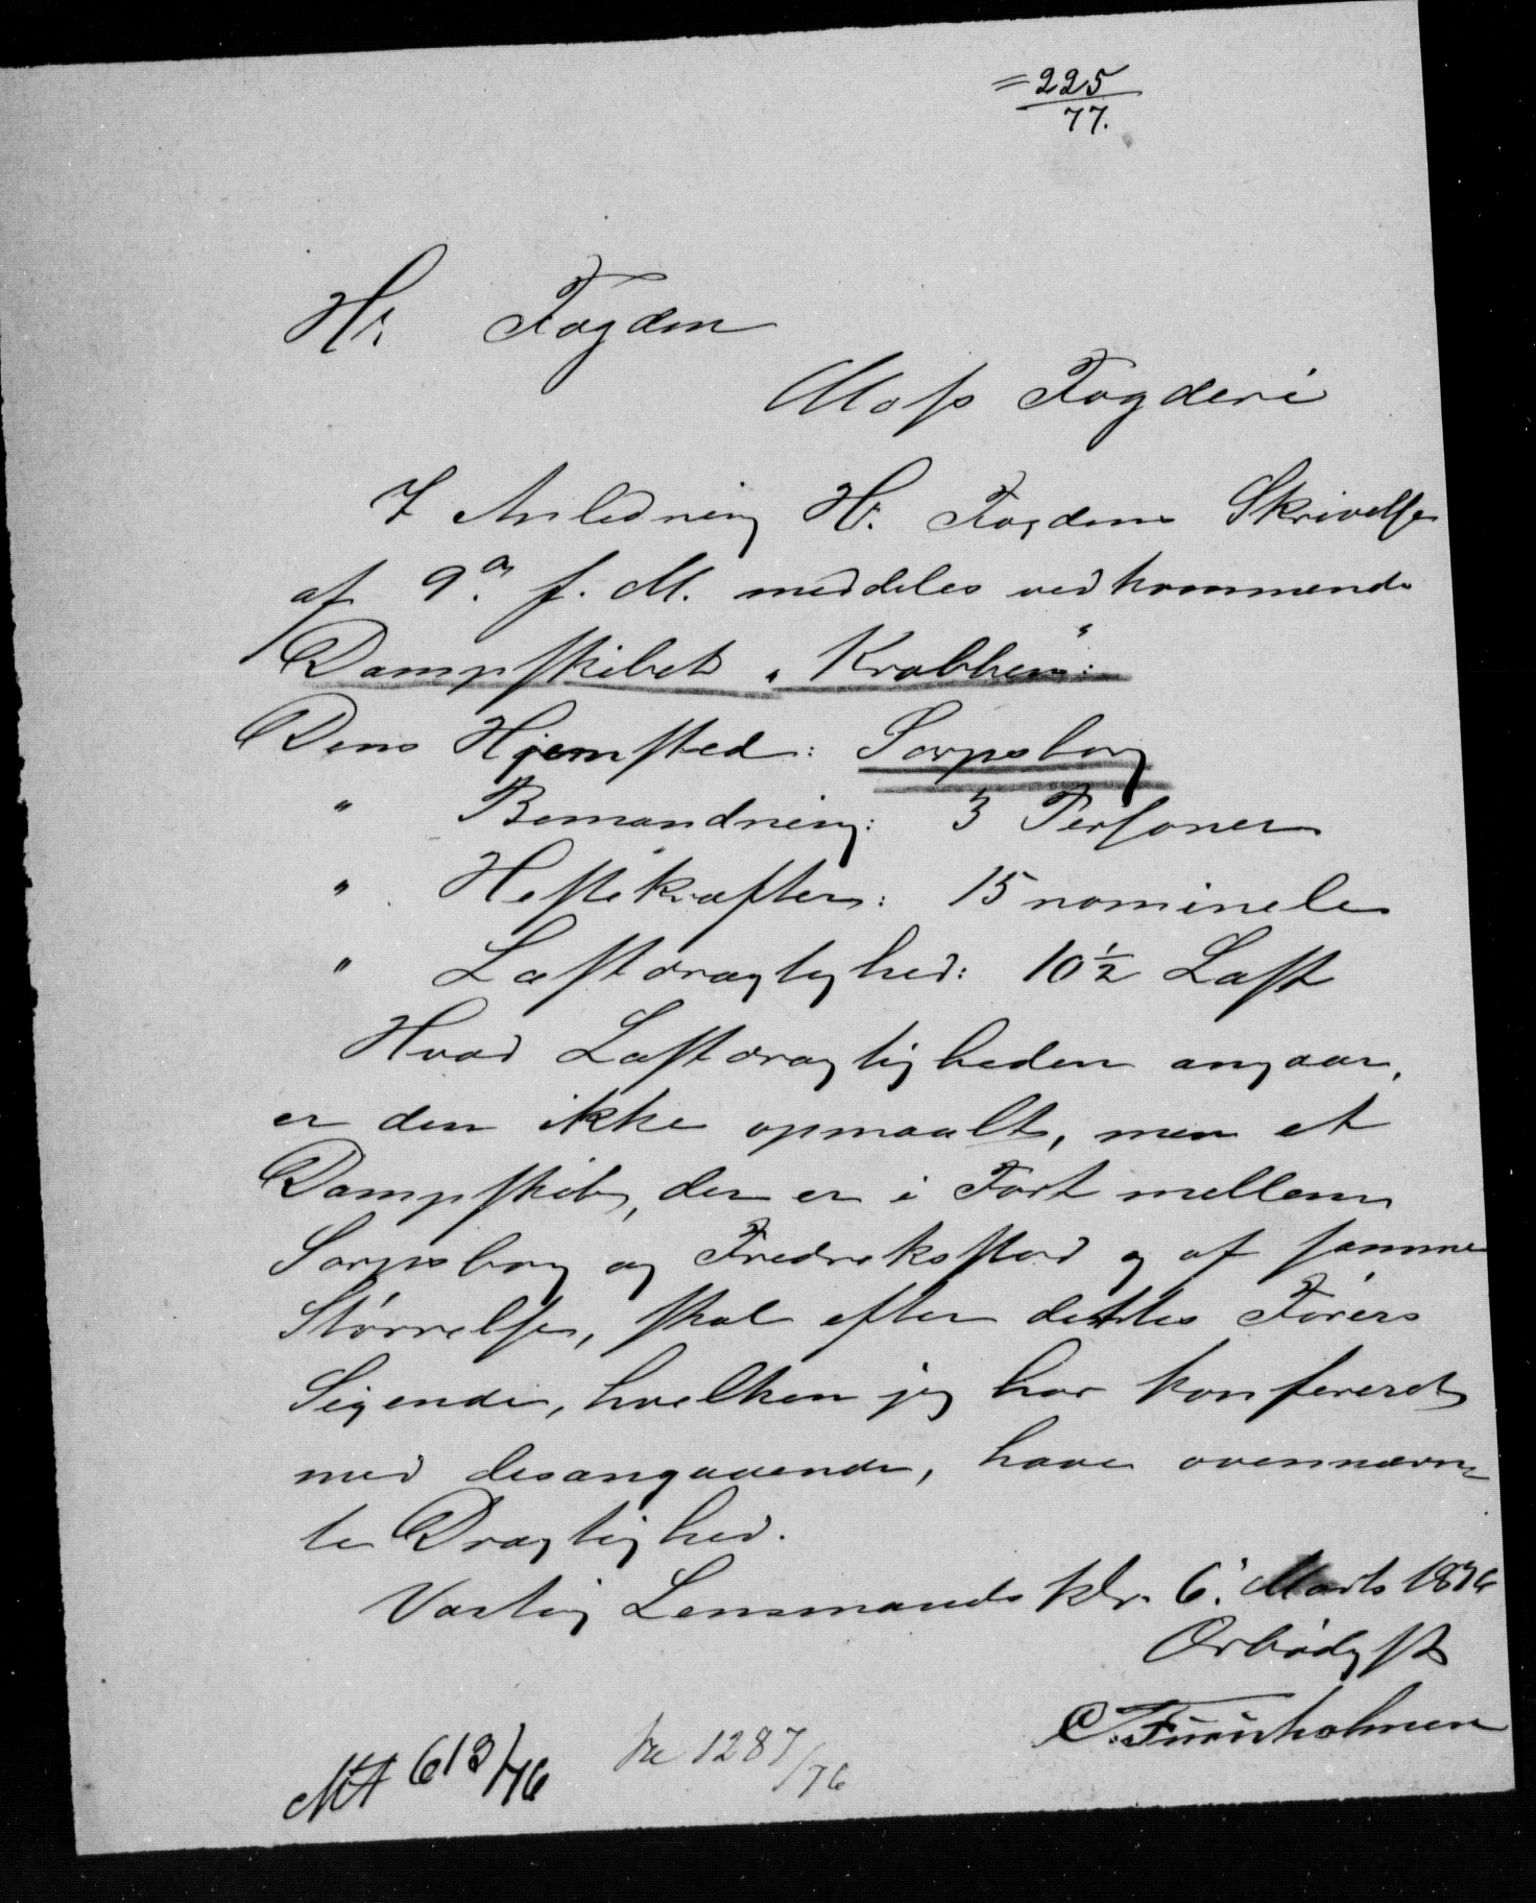 = 225
77.
Hr. Fogden
Moss Fogderi
I Anledning Hr. Fogdens Skrivelse
af 9de f. M. meddeles vedkommende
Dampskibet „Krabben“:
Dens Hjemsted: Sarpsborg
" Bemandning: 3 Personer
" Hestekræfter: 15 nominele
" Læstdrægtighed: 10½ Læst
Hvad Læstdrægtigheden angaar,
er den ikke opmaalt, men et
Dampskib, der er i Fart mellem
Sarpsborg og Fredrikstad og af samme
Størrelse, skal efter dettes Førers
Sigende, hvilken jeg har konfereret
med desangaaende, have ovennævn-
te Drægtighed.
Varteig Lensmandsktr. 6. Marts 1876
Ærbødigst
C. Furuholmen
613/76
1287/76